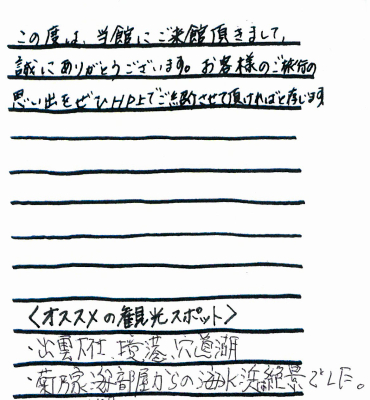 この度は、当館にご来館頂きまして、
誠にありがとうございます。お客様のご旅行の
思い出をぜひHP上でご紹介させて頂ければと存じます
〈オススメの観光スポット〉
・出雲大社、境港、宍道湖
・菊乃家 部屋からの海水浜絶景でした。